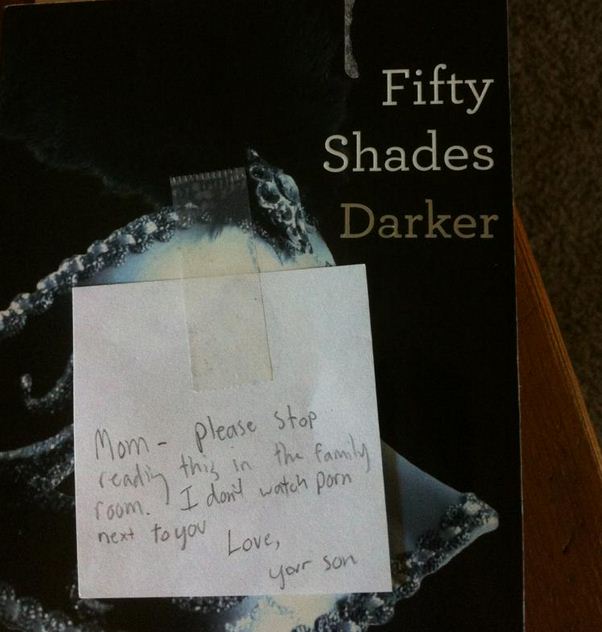 Fifty
Shades
Darker
Mom - please stop
reading this in the family
room. I don't watch porn
next to you
Love,
your son